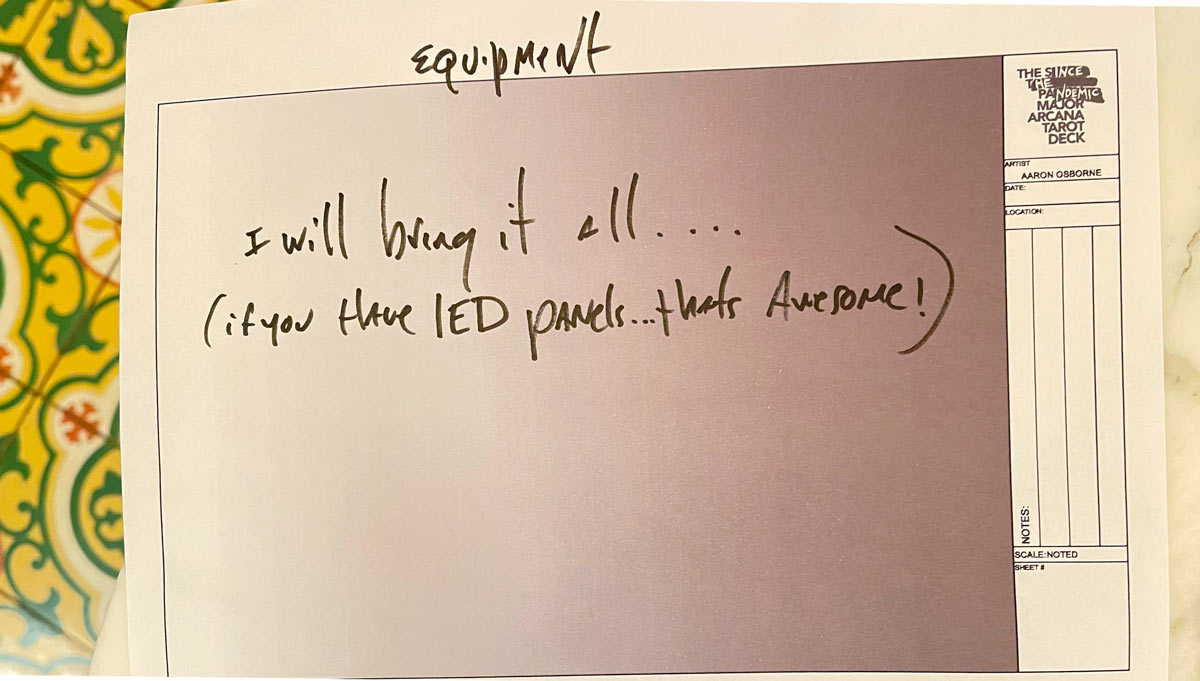 EQUIPMENT
I will bring it all.....
(if you HAVE LED PANels...thats Awesome!)
THE SINCE
THE
PANDEMIC
MAJOR
ARCANA
TAROT
DECK
ARTIST
AARON OSBORNE
DATE:
LOCATION:
NOTES:
SCALE:NOTED
SHEET #